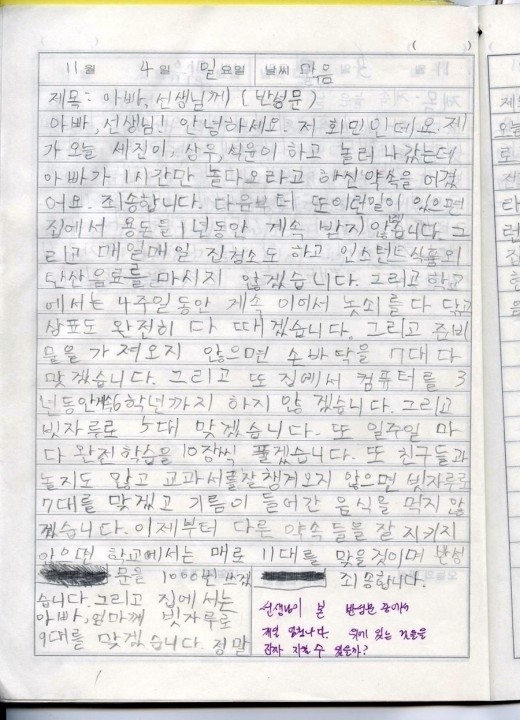 11월 4일 일요일 날씨 맑음
제목: 아빠, 선생님께) (반성문)
아빠, 선생님! 안녕하세요. 저 희민인데요. 제
가 오늘 세진이, 상우, 석윤이 하고 놀러 나갔는데
아빠가 1시간만 놀다오라고 하신 약속을 어겼
어요. 죄송합니다. 다음부터 또 이런일이 있으면
집에서 용돈을 1년동안 계속 받지 않겠습니다. 그
리고 매일매일 집청소도 하고 인스턴트식품과
탄산음료를 마시지 않겠습니다. 그리고 학교
에서는 4주일동안 계속 이어서 놋쇠를 다 닦고
상표도 완전히 다 따겠습니다. 그리고 준비
물을 가져오지 않으면 손바닥을 7대 다
맞겠습니다. 그리고 또 집에서 컴퓨터를 3
년동안 계속 6학년까지 하지 않겠습니다. 그리고
빗자루로 5대 맞겠습니다. 또 일주일 마
다 완전학습을 10장씩 풀겠습니다. 또 친구들과
놀지도 않고 교과서를 잘 챙겨오지 않으면 빗자루로
7대를 맞겠고 기름이 들어간 음식을 먹지 않
겠습니다. 이제부터 다른 약속들을 잘 지키지
않으면 학교에서는 매로 11대를 맞을것이며 반성
문을 1000번 쓰겠
습니다. 그리고 집에서는
아빠, 엄마께 빗자루로
9대를 맞겠습니다. 정말
죄송합니다.
선생님이 본 반성문 중에서
제일 멋있다. 위에 있는 것들을
감자 지킬 수 있을까?